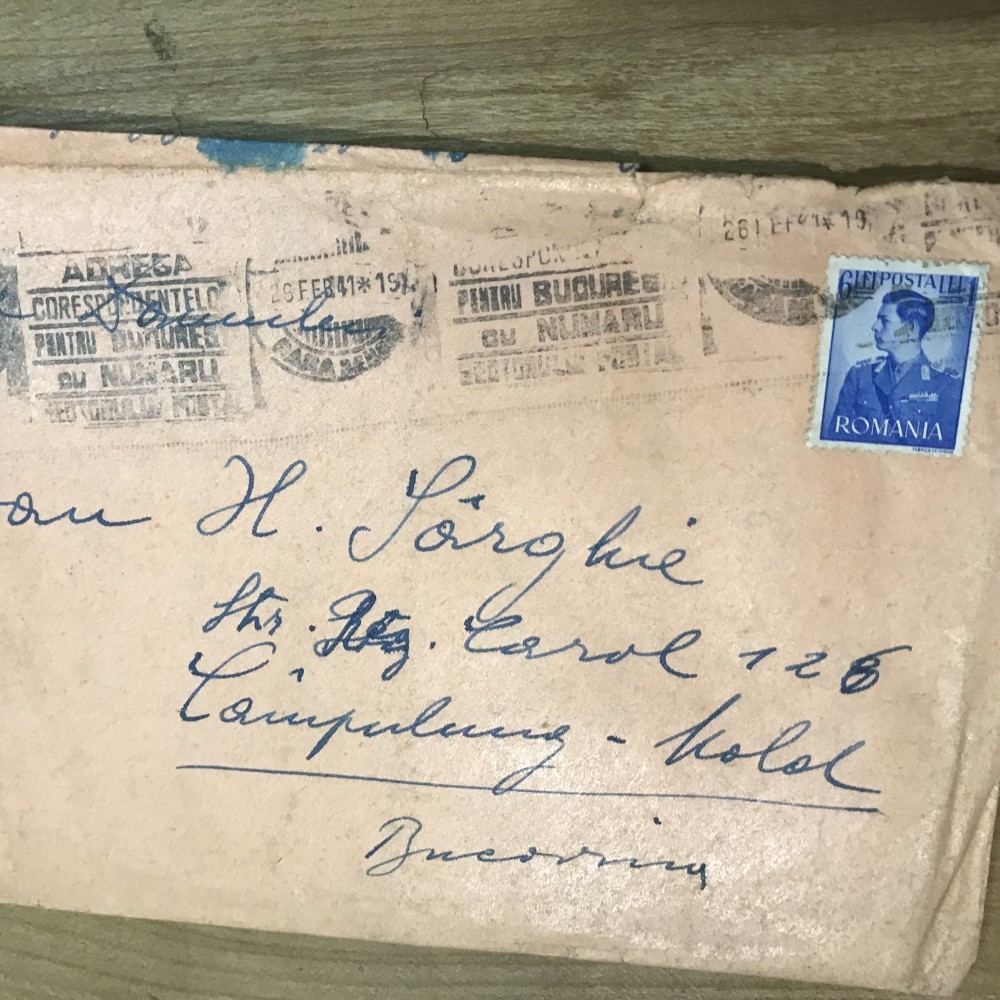 ADRESA
CORESPONDENTELOR
PENTRU BUCURE
CU NUMARU
SECTORULUI POSTAL
26 FEB 41 * 19
GARA DE N
CORESPON
PENTRU BUCURE
CU NUMARU
SECTORULUI POSTAL
26 FEB 41 * 19
6 LEI POSTA LEI
ROMANIA
Domnului
H. Sârghie
Str. Reg. Carol 126
Câmpulung - Mold
Bucovina